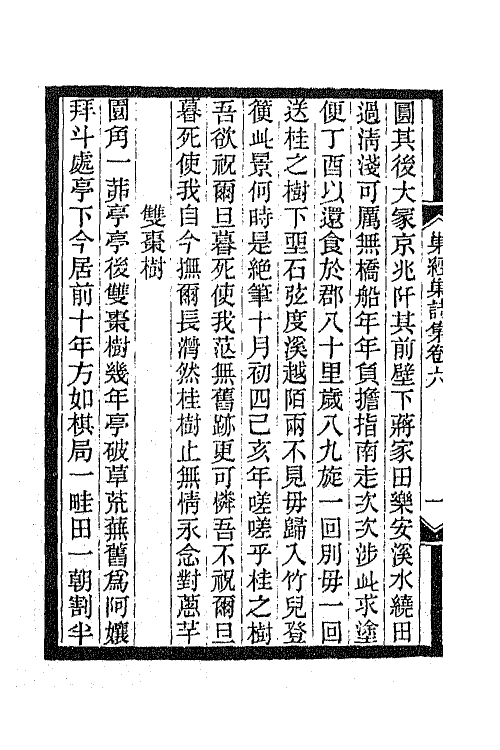 巢經巢詩集卷六
一
圓其後大冢京兆阡其前壁下蔣家田樂安溪水繞田
過淸淺可厲無橋船年年負擔指南走次次涉此求塗
便丁酉以還食於郡八十里歲八九旋一回別毋一回
送桂之樹下堊石弦度溪越陌兩不見毋歸入竹兒登
篗此景何時是絶筆十月初四己亥年嗟嗟乎桂之樹
吾欲祝爾旦暮死使我茫無舊跡更可憐吾不祝爾旦
暮死使我自今撫爾長濟然桂樹止無情永念對蔥芊
雙棗樹
園角一茆亭亭後雙棗樹幾年亭破草荒蕪舊爲阿孃
拜斗處亭下今居前十年方如棋局一畦田一朝割半